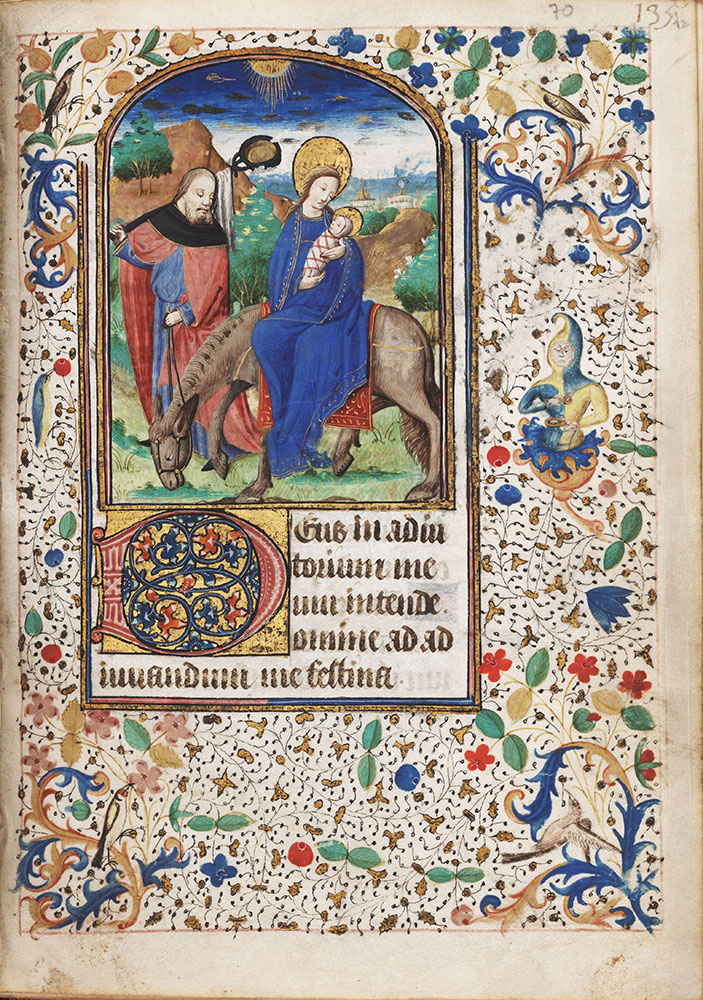 70
135
Deus in adiu
torium me
um intende.
omine ad ad
iuuandum me festina.